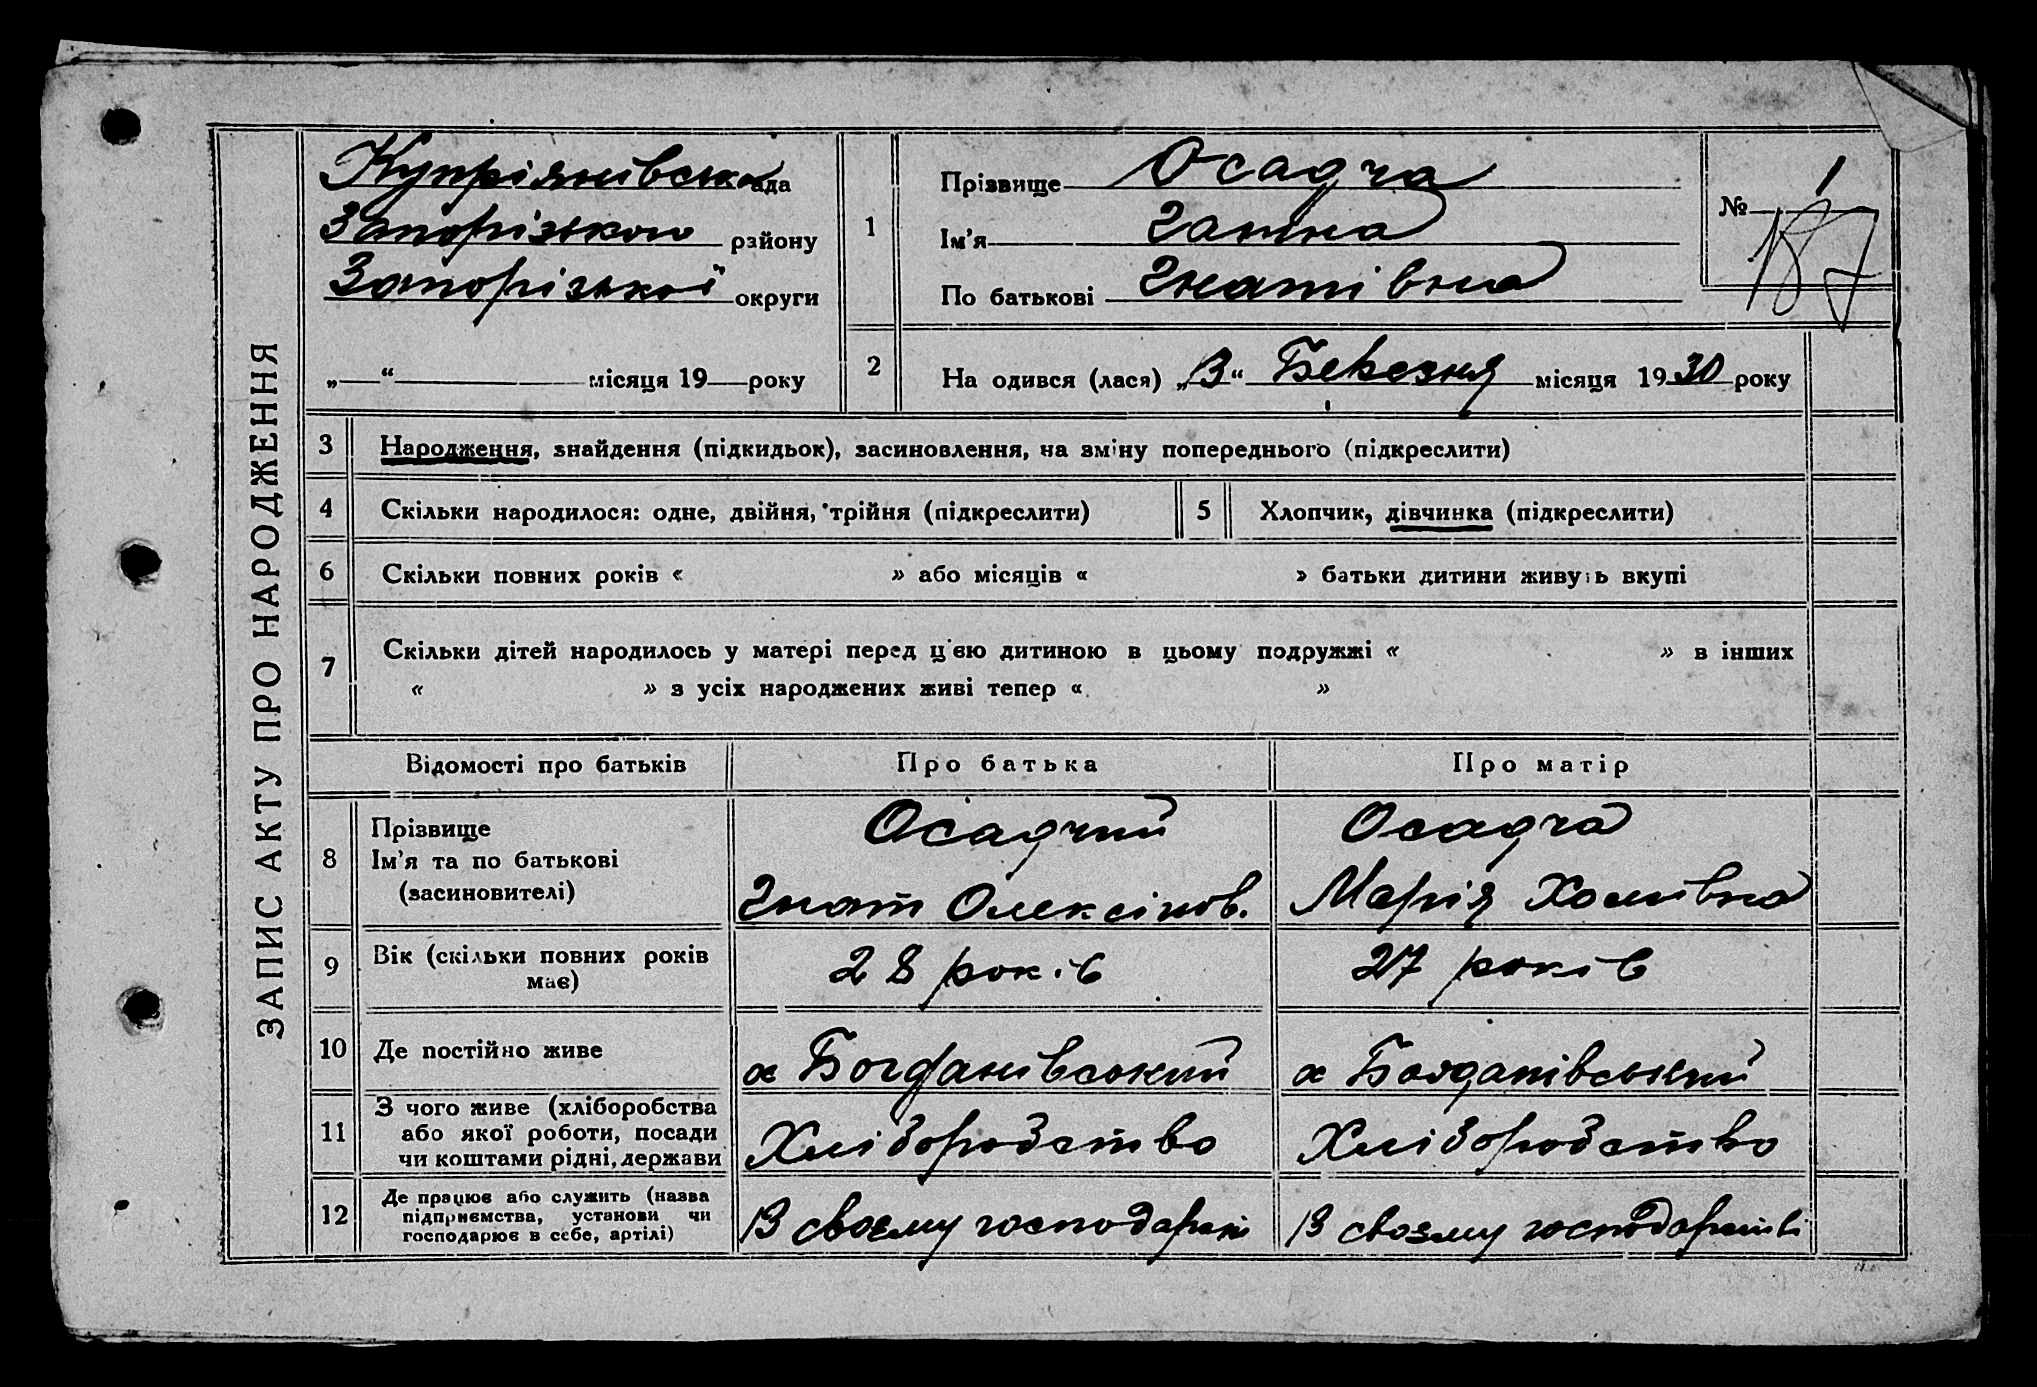 ЗАПИС АКТУ ПРО НАРОДЖЕННЯ
Купріянівська рада
Запорізького району
Запорізької округи
„ “ місяця 19 року
1
Прізвище Осадча
Ім'я Ганна
По батькові Гнатівна
№ 1
187
2
На одився (лася) „13“ Березня місяця 1930 року
3 Народження, знайдення (підкидьок), засиновлення, на зміну попереднього (підкреслити)
4 Скільки народилося: одне, двійня, трійня (підкреслити) 5 Хлопчик, дівчинка (підкреслити)
6 Скільки повних років « » або місяців « » батьки дитини живуть вкупі
7 Скільки дітей народилось у матері перед цією дитиною в цьому подружжі « » в інших
« » з усіх народжених живі тепер « »
Відомості про батьків Про батька Про матір
8 Прізвище
Ім'я та по батькові
(засиновителі)
Осадчий
Гнат Олексіїов.
Осадча
Марія Хомівна
9 Вік (скільки повних років
має)
28 років
27 років
10 Де постійно живе
х Богданівський
х Богданівський
11 З чого живе (хліборобства
або якої роботи, посади
чи коштами рідні, держави
Хліборобство
Хліборобство
12 Де працює або служить (назва
підприємства, установи чи
господарює в себе, артілі)
В своєму господарст
В своєму господарстві